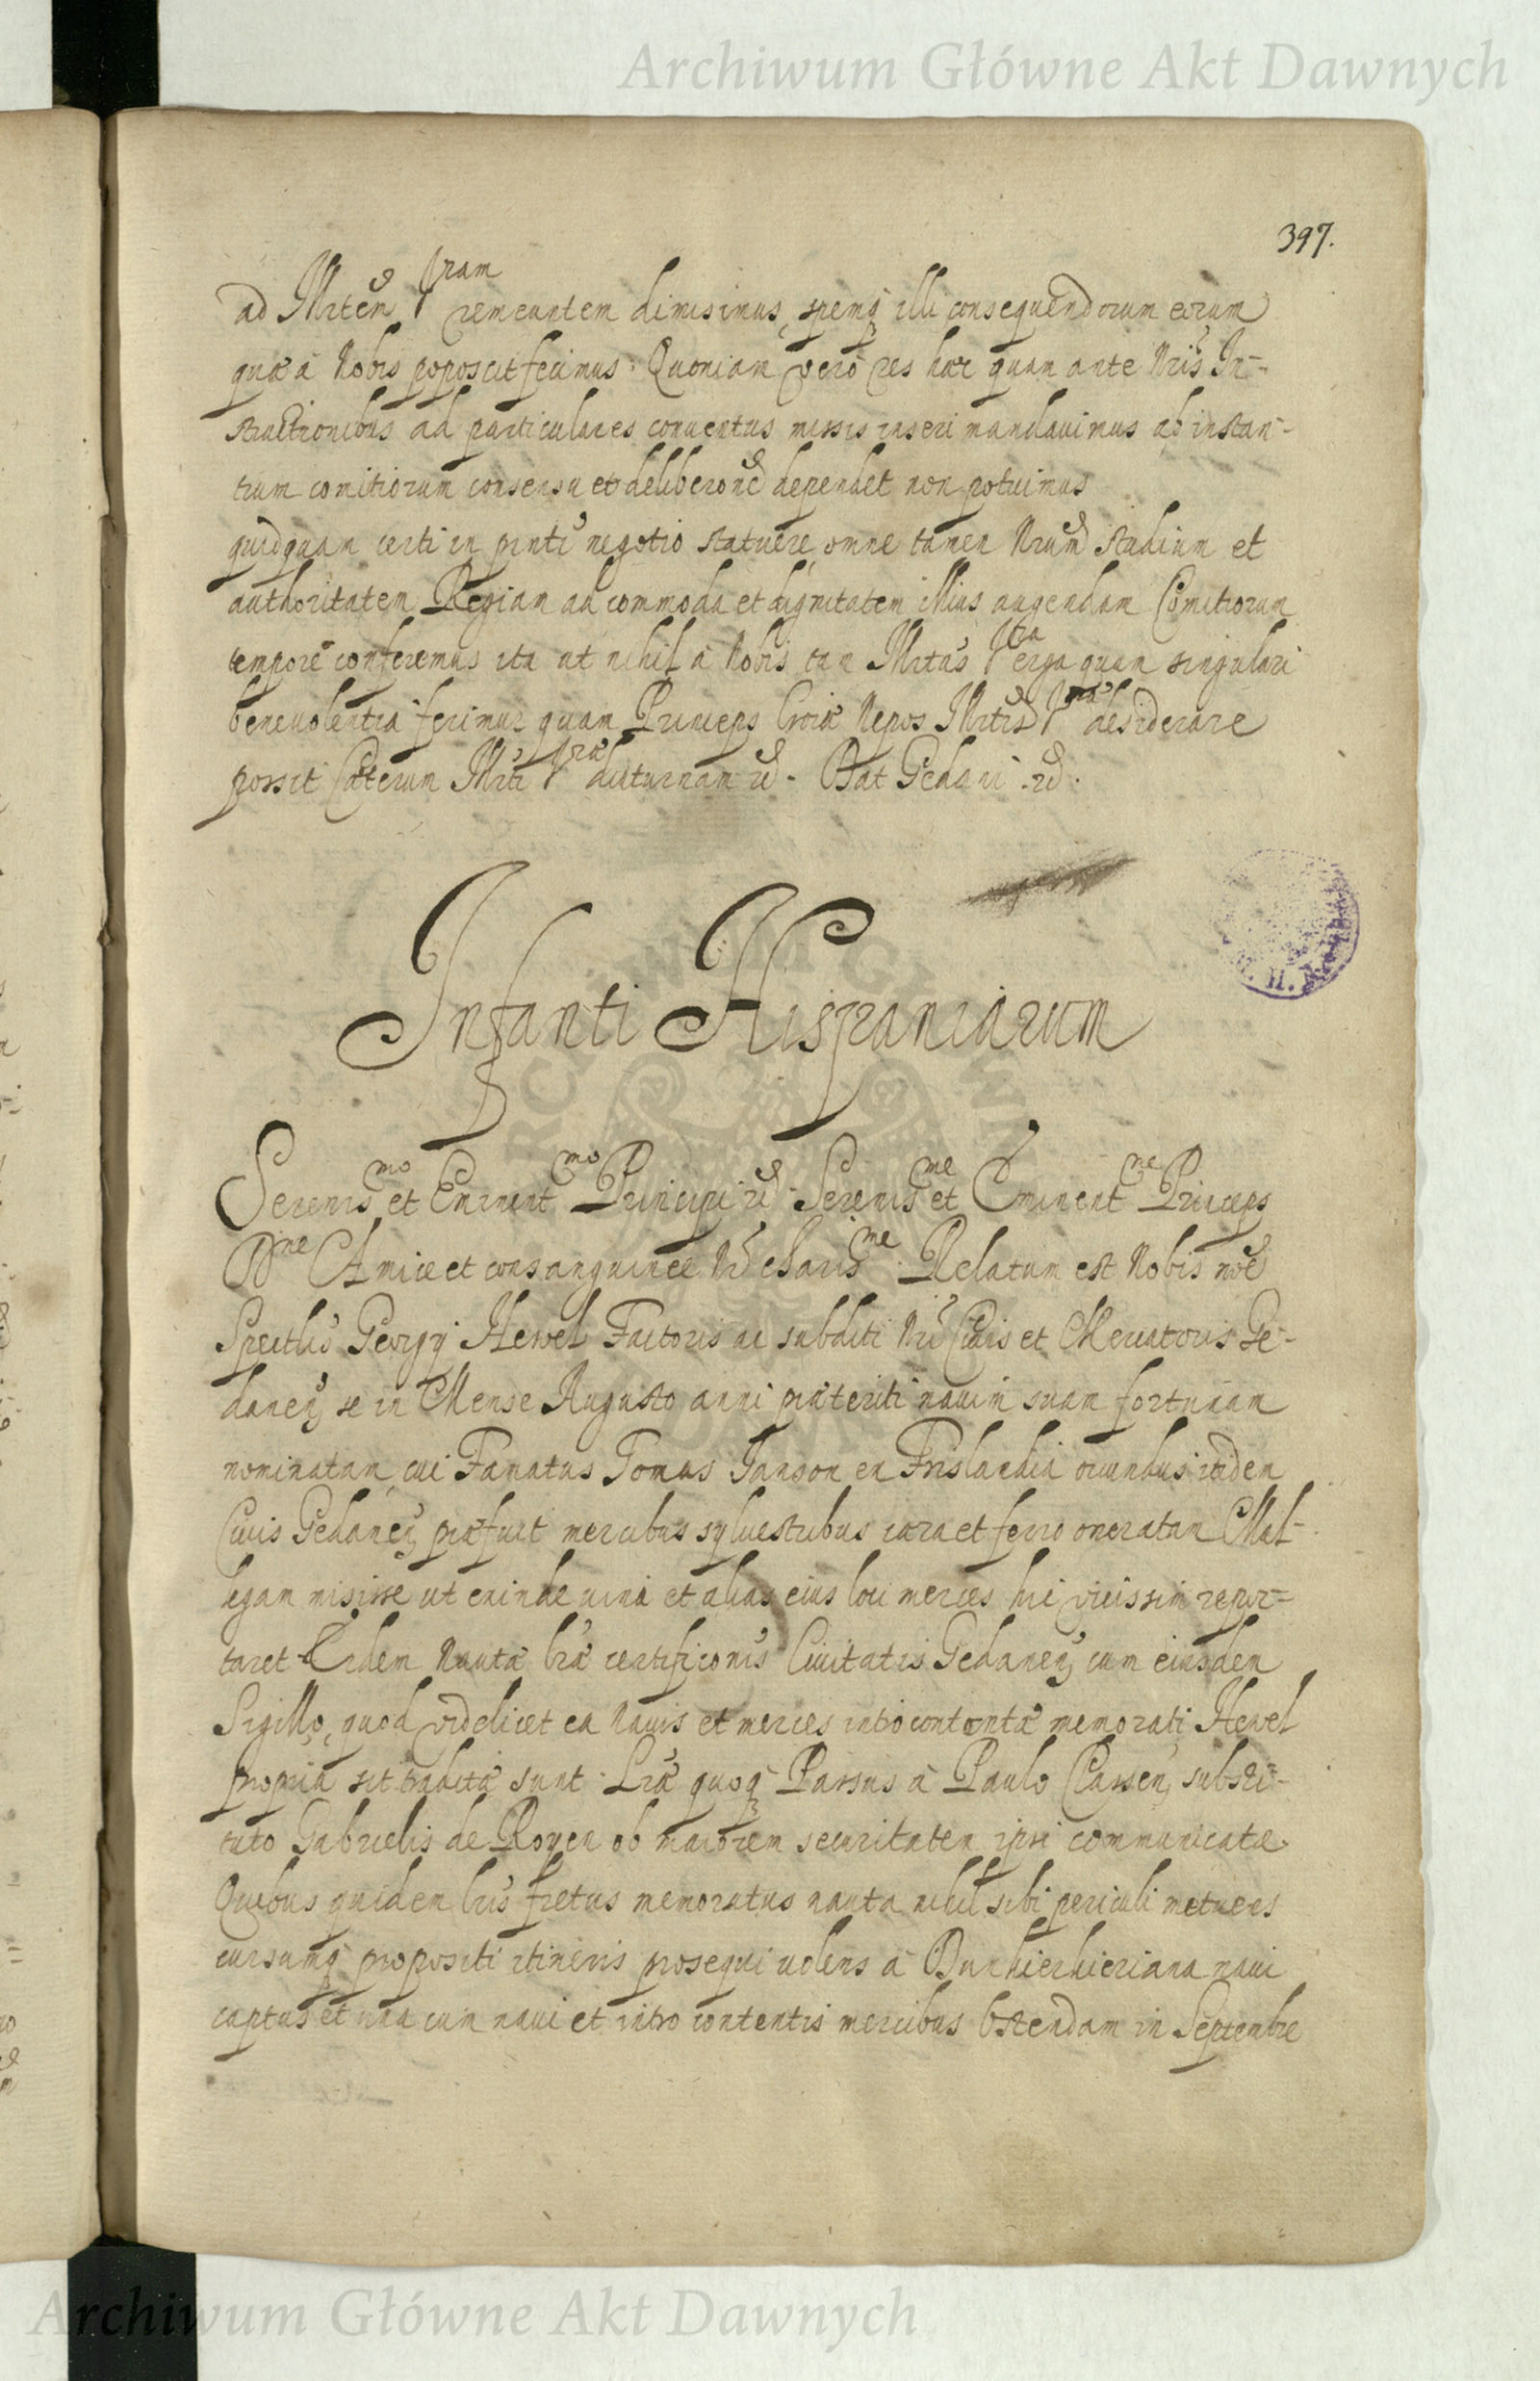 Archiwum Główne Akt Dawnych
397.
ad Mtem Vram remeantem dimisimus, spemq illi consequendorum eorum
quæ à Nobis poposcit fecimus. Quoniam verò res hæc quam ante Nris In-
structionibus ad particulares conventus missis inseri mandavimus ab instan-
tium comitiorum consensu et deliberone dependet non potuimus
quidquam certi in pnti negotio statuere, omne tamen Nrum studium et
authoritatem Regiam ad commoda et dignitatem illius augendam Comitiorum
tempore conferemus ita ut nihil à Nobis tam Mtas Vra erga quam singulari
benevolentia ferimur quam Princeps Croiæ Nepos Mtis Vræ desiderare
possit Cæterum Mti Vræ diuturnam &. Dat Gedani &.
Infanti Hispaniarum
Serenismo et Eminentmo Principi & Serenisme et Eminentme Princeps
Dne Amice et consanguinee Nr charisme. Relatum est Nobis noe
Spectlis Georgij Hewel Factoris ac subditi Nri Civis et Mercatoris Ge-
danen, se in Mense Augusto anni præteriti navim suam fortunam
nominatam, cui Famatus Tomas Janson ex Frislandia oriundus itidem
Civis Gedanen, præfuit mercibus sylvestribus cera et ferro oneratam Mal-
legam misisse ut exinde vina et alias eius loci merces huc vicissim repor-
taret Eidem Nautæ lræ certificonis Civitatis Gedanen, cum eiusdem
Sigillo, quod videlicet ea navis et merces intro contentæ memorati Hewel
propria sit traditæ sunt. Lræ quoq Passus à Paulo Classen, substi-
tuto Gabrielis de Royen ob maiorem securitatem ipsi communicatæ.
Quibus quidem lris fretus memoratus nauta nihil sibi periculi metuens
cursumq propositi itineris prosequi volens à Dunkierkieriana navi
captus et una cum navi et intro contentis mercibus Ostendam in Septembre
Archiwum Główne Akt Dawnych